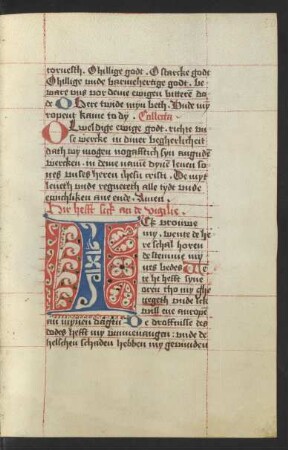 tornesth. O hillige godt. O starcke godt
O hillige vnde barmehertige godt. be
ware vns vor deme ewigen bitteren do
de O here twide myn beth. Vnde my
ropent kame to dy. Collecta.
O Weldige ewige godt. richte vn
se wercke in diner begherlicheit
dath wy mogen nogafftich syn an guden
wercken. in deme namen dynes leuen so
nes vnses heren ihesu cristi. De myt
leueth vnde regnereth alle tyde vnde
ewichliken ane ende. Amen
Hir hefft sick an de vigilie.
Ick vrouwe
my. wente de he
re schal horen
de stemme my
nes bedes We
te he hefft syne
aren tho my ghe
negeth vnde ick
will ene anrope
an mynen dagen De droffnisse des
dodes hefft my vmmevangen: vnde de
helschen schaden hebben my gevunden